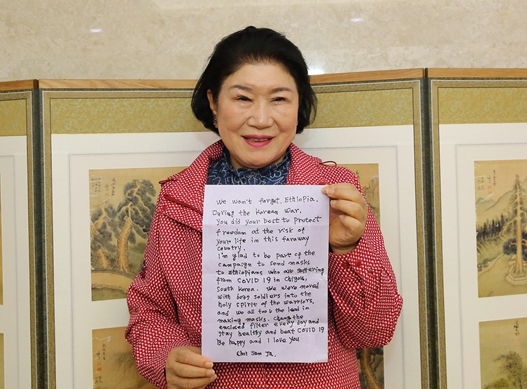 We won't forget, Ethiopia.
During the Korean War.
You did your best to protect
freedom at the risk of
your life in this faraway
country.
I'm glad to be part of the
campaign to send masks
to ethiopians who are suffering
from COVID 19 in
South Korea. We were moved
with soldiers into the
holy spirit of the warriors,
and we all took the lead in
making masks. Change the
enclosed filter every day and
stay healthy and beat COVID 19
Be happy and I love you
Choi Soon Ja.